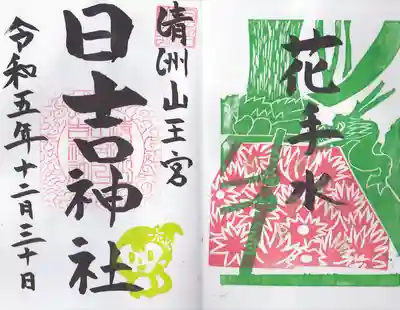 花手水
清洲山王宮
日吉神社
令和五年十二月三十日